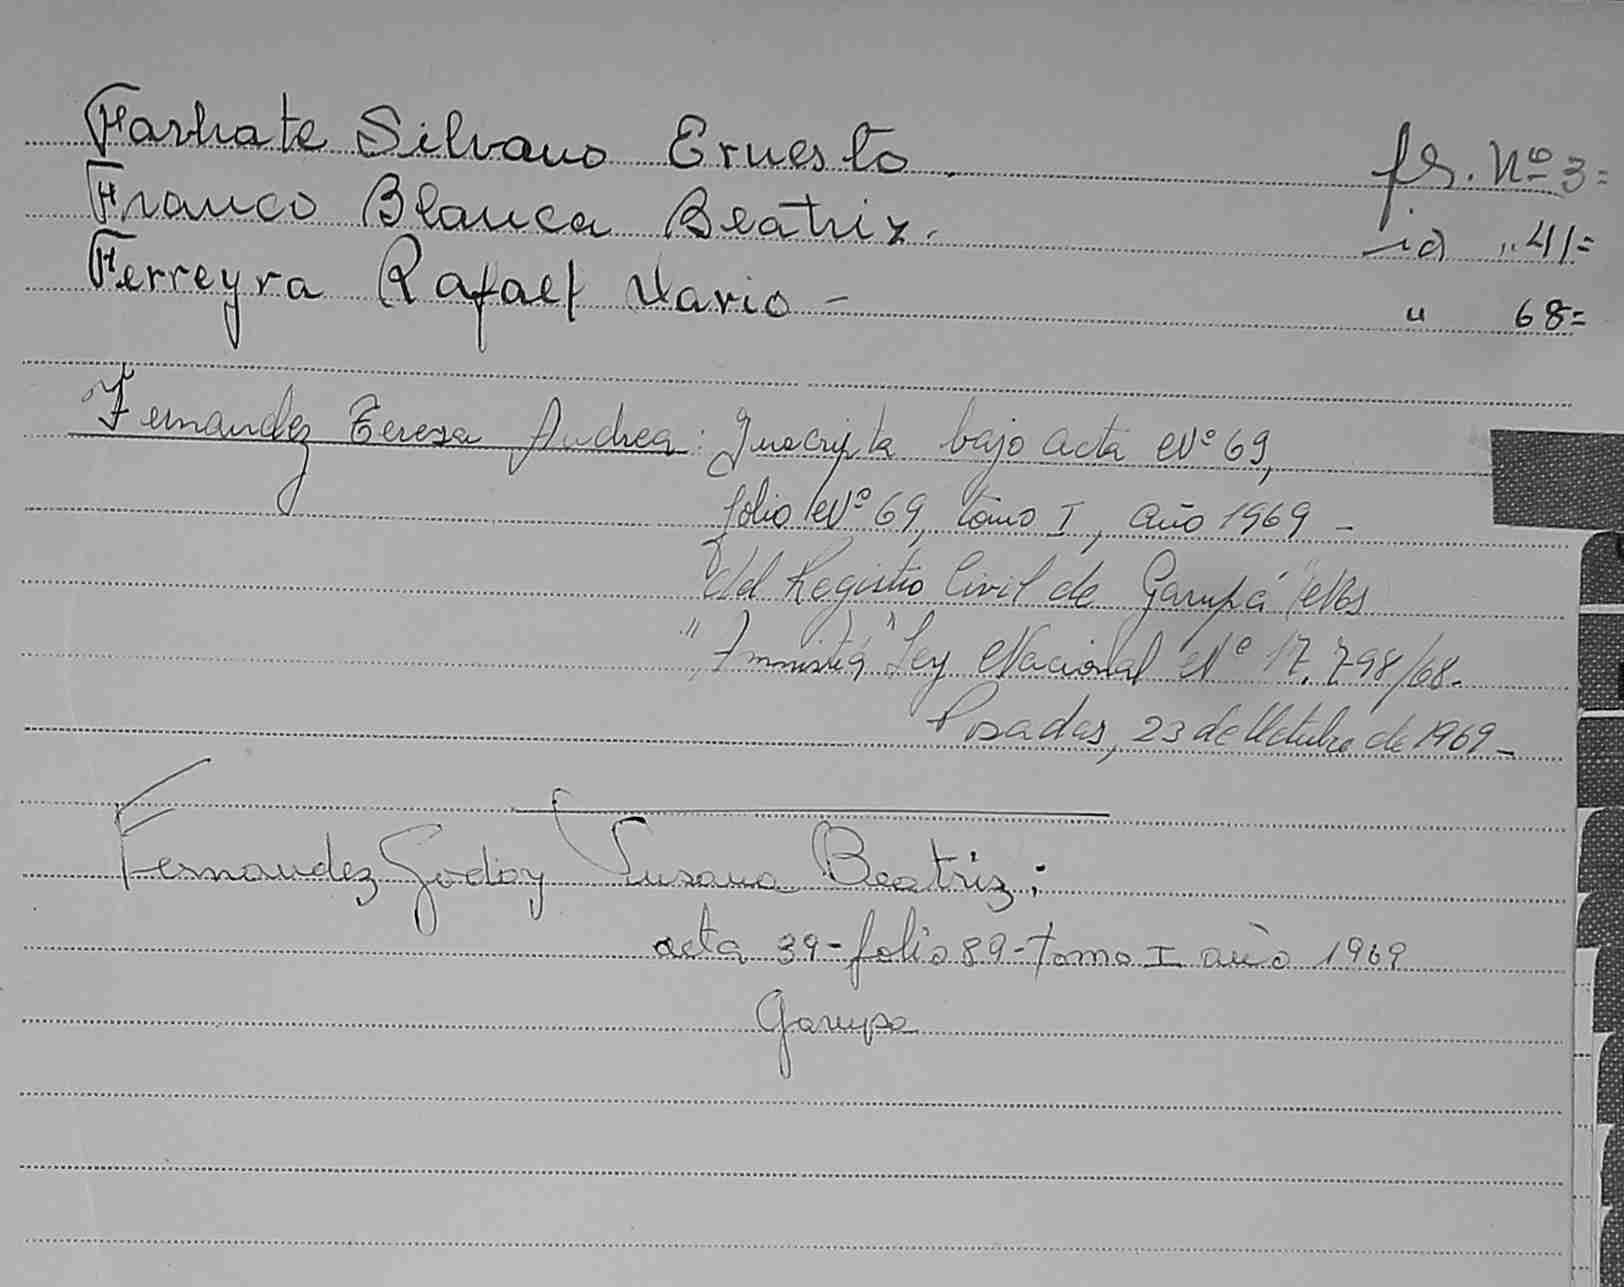 Farhate Silvano Ernesto. fs. Nº 3=
Franco Blanca Beatriz. id " 41=
Ferreyra Rafael Mario - " 68=
Fernandez Teresa Andrea: Inscripta bajo acta Nº 69,
folio Nº 69, tomo I, año 1969 -
del Registro Civil de Garupá
"Amnistia" Ley Nacional Nº 17.798/68.
Posadas, 23 de Octubre de 1969 -
Fernandez Godoy Susana Beatriz:
acta 39 - folio 89 - tomo I año 1969
Garupa